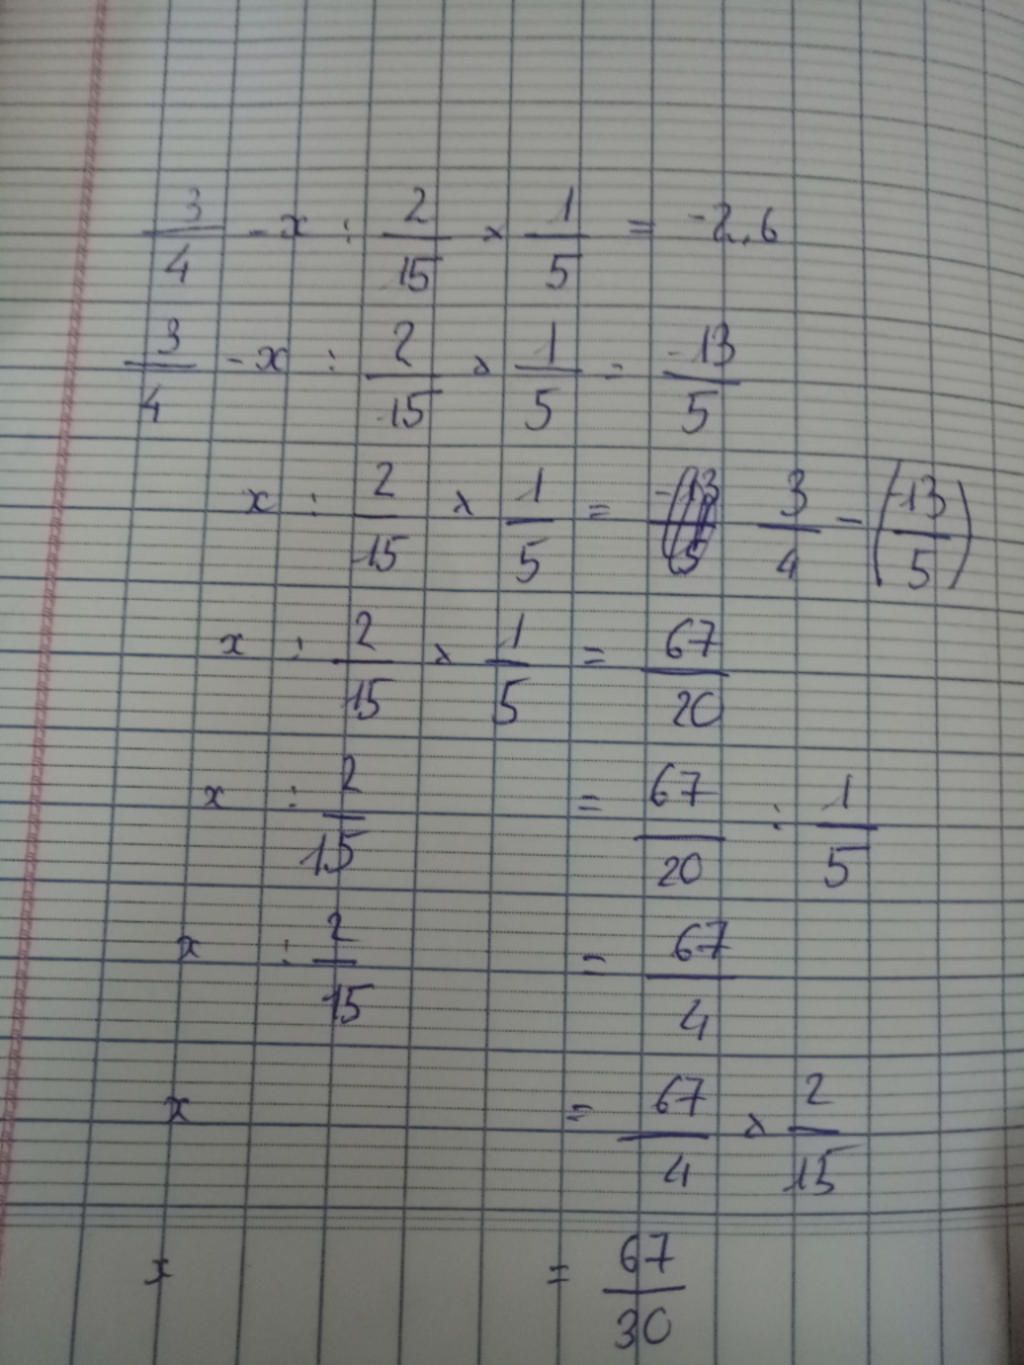 3/4 - x : 2/15 × 1/5 = -2,6
3/4 - x : 2/15 × 1/5 = -13/5
x : 2/15 × 1/5 = 3/4 - (-13/5)
x : 2/15 × 1/5 = 67/20
x : 2/15 = 67/20 : 1/5
x : 2/15 = 67/4
x = 67/4 × 2/15
x = 67/30